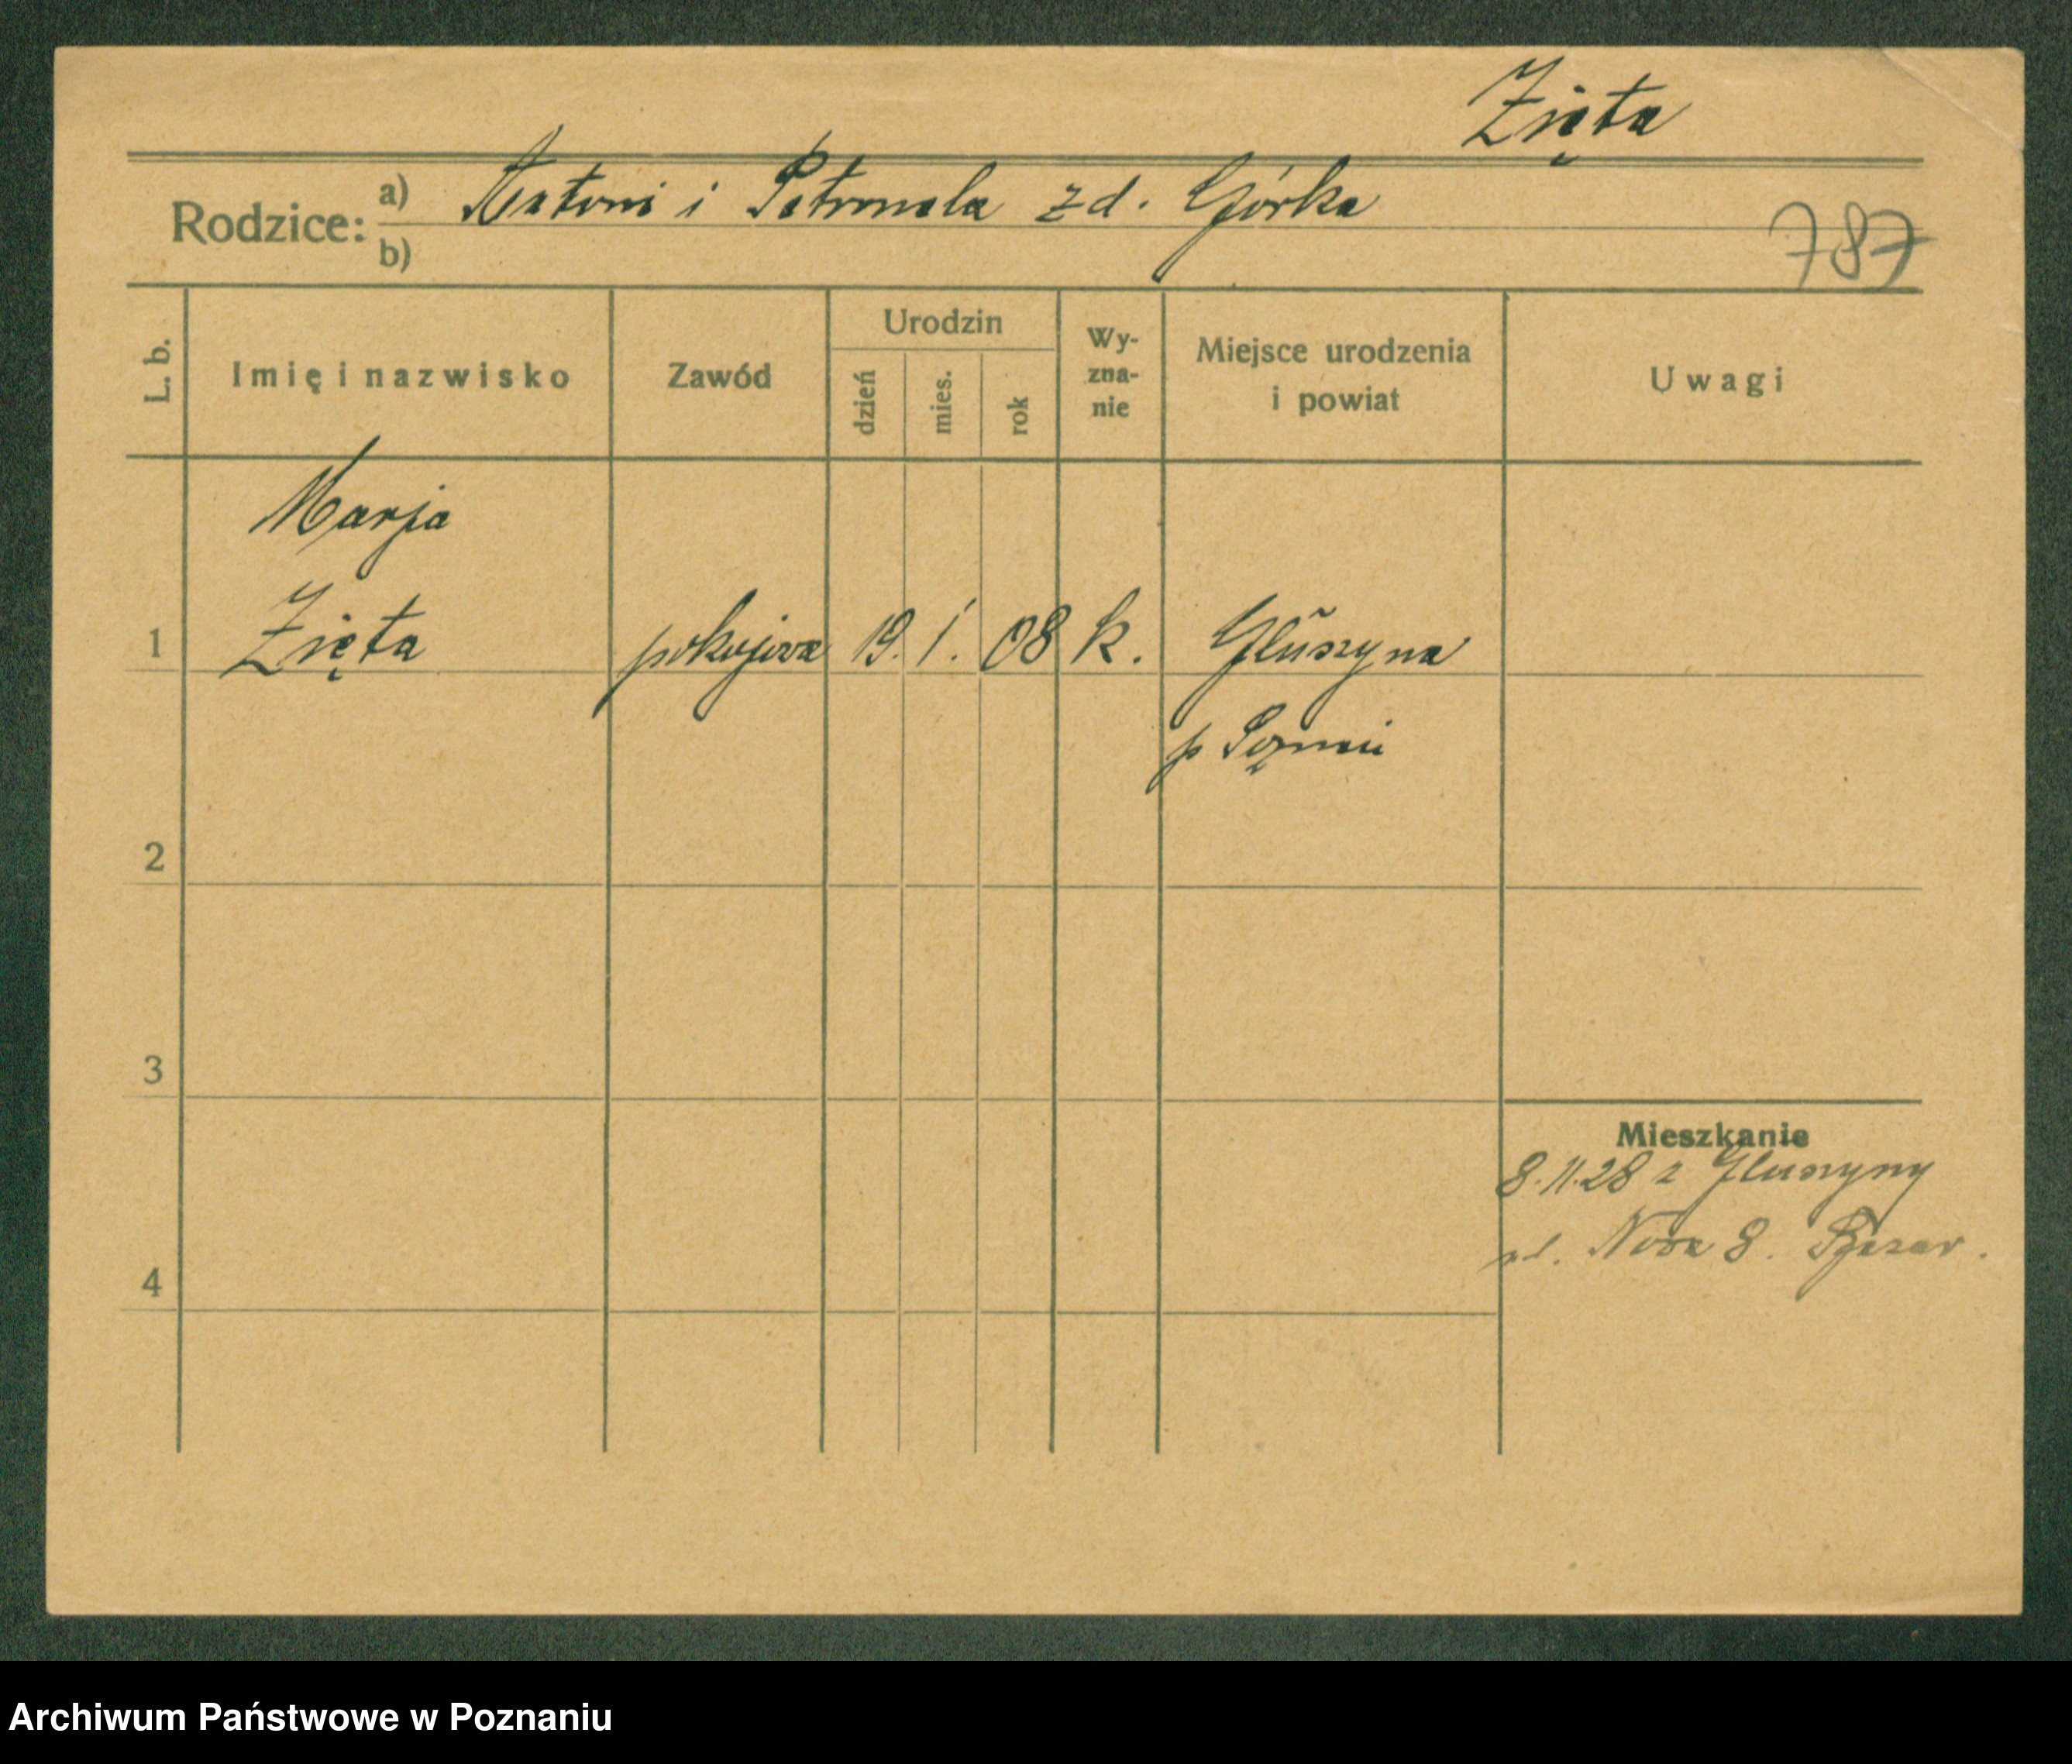 Zięta
Rodzice: a) Antoni i Petronela z d. Górka
b)
787
L. b.
Imię i nazwisko
Zawód
Urodzin
dzień
mies.
rok
Wy-
zna-
nie
Miejsce urodzenia
i powiat
Uwagi
Marja
1 Zięta pokojowa 19. 1. 08 k. Głuszyna
p Poznań
2
3
Mieszkanie
8.11.28 z Głuszyny
ul. Nowa 8.
4
Archiwum Państwowe w Poznaniu